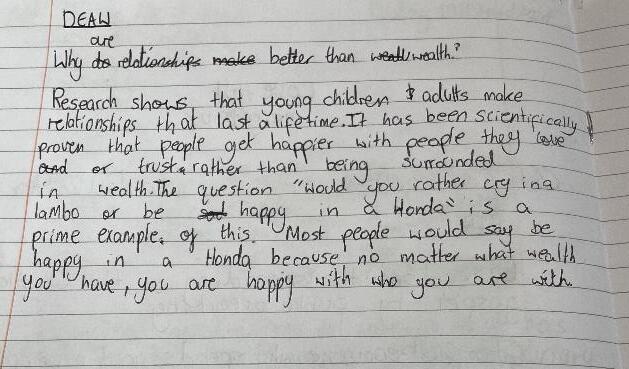 DEAW
are
Why do relationships make better than wealt wealth?
Research shows that young children & adults make
relationships that last a lifetime. It has been scientifically
proven that people get happier with people they love
and or trust, rather than being surrounded
in wealth. The question "would you rather cry in a
lambo or be sad happy in a Honda" is a
prime example. of this. Most people would say be
happy in a Honda because no matter what wealth
you have, you are happy with who you are with.